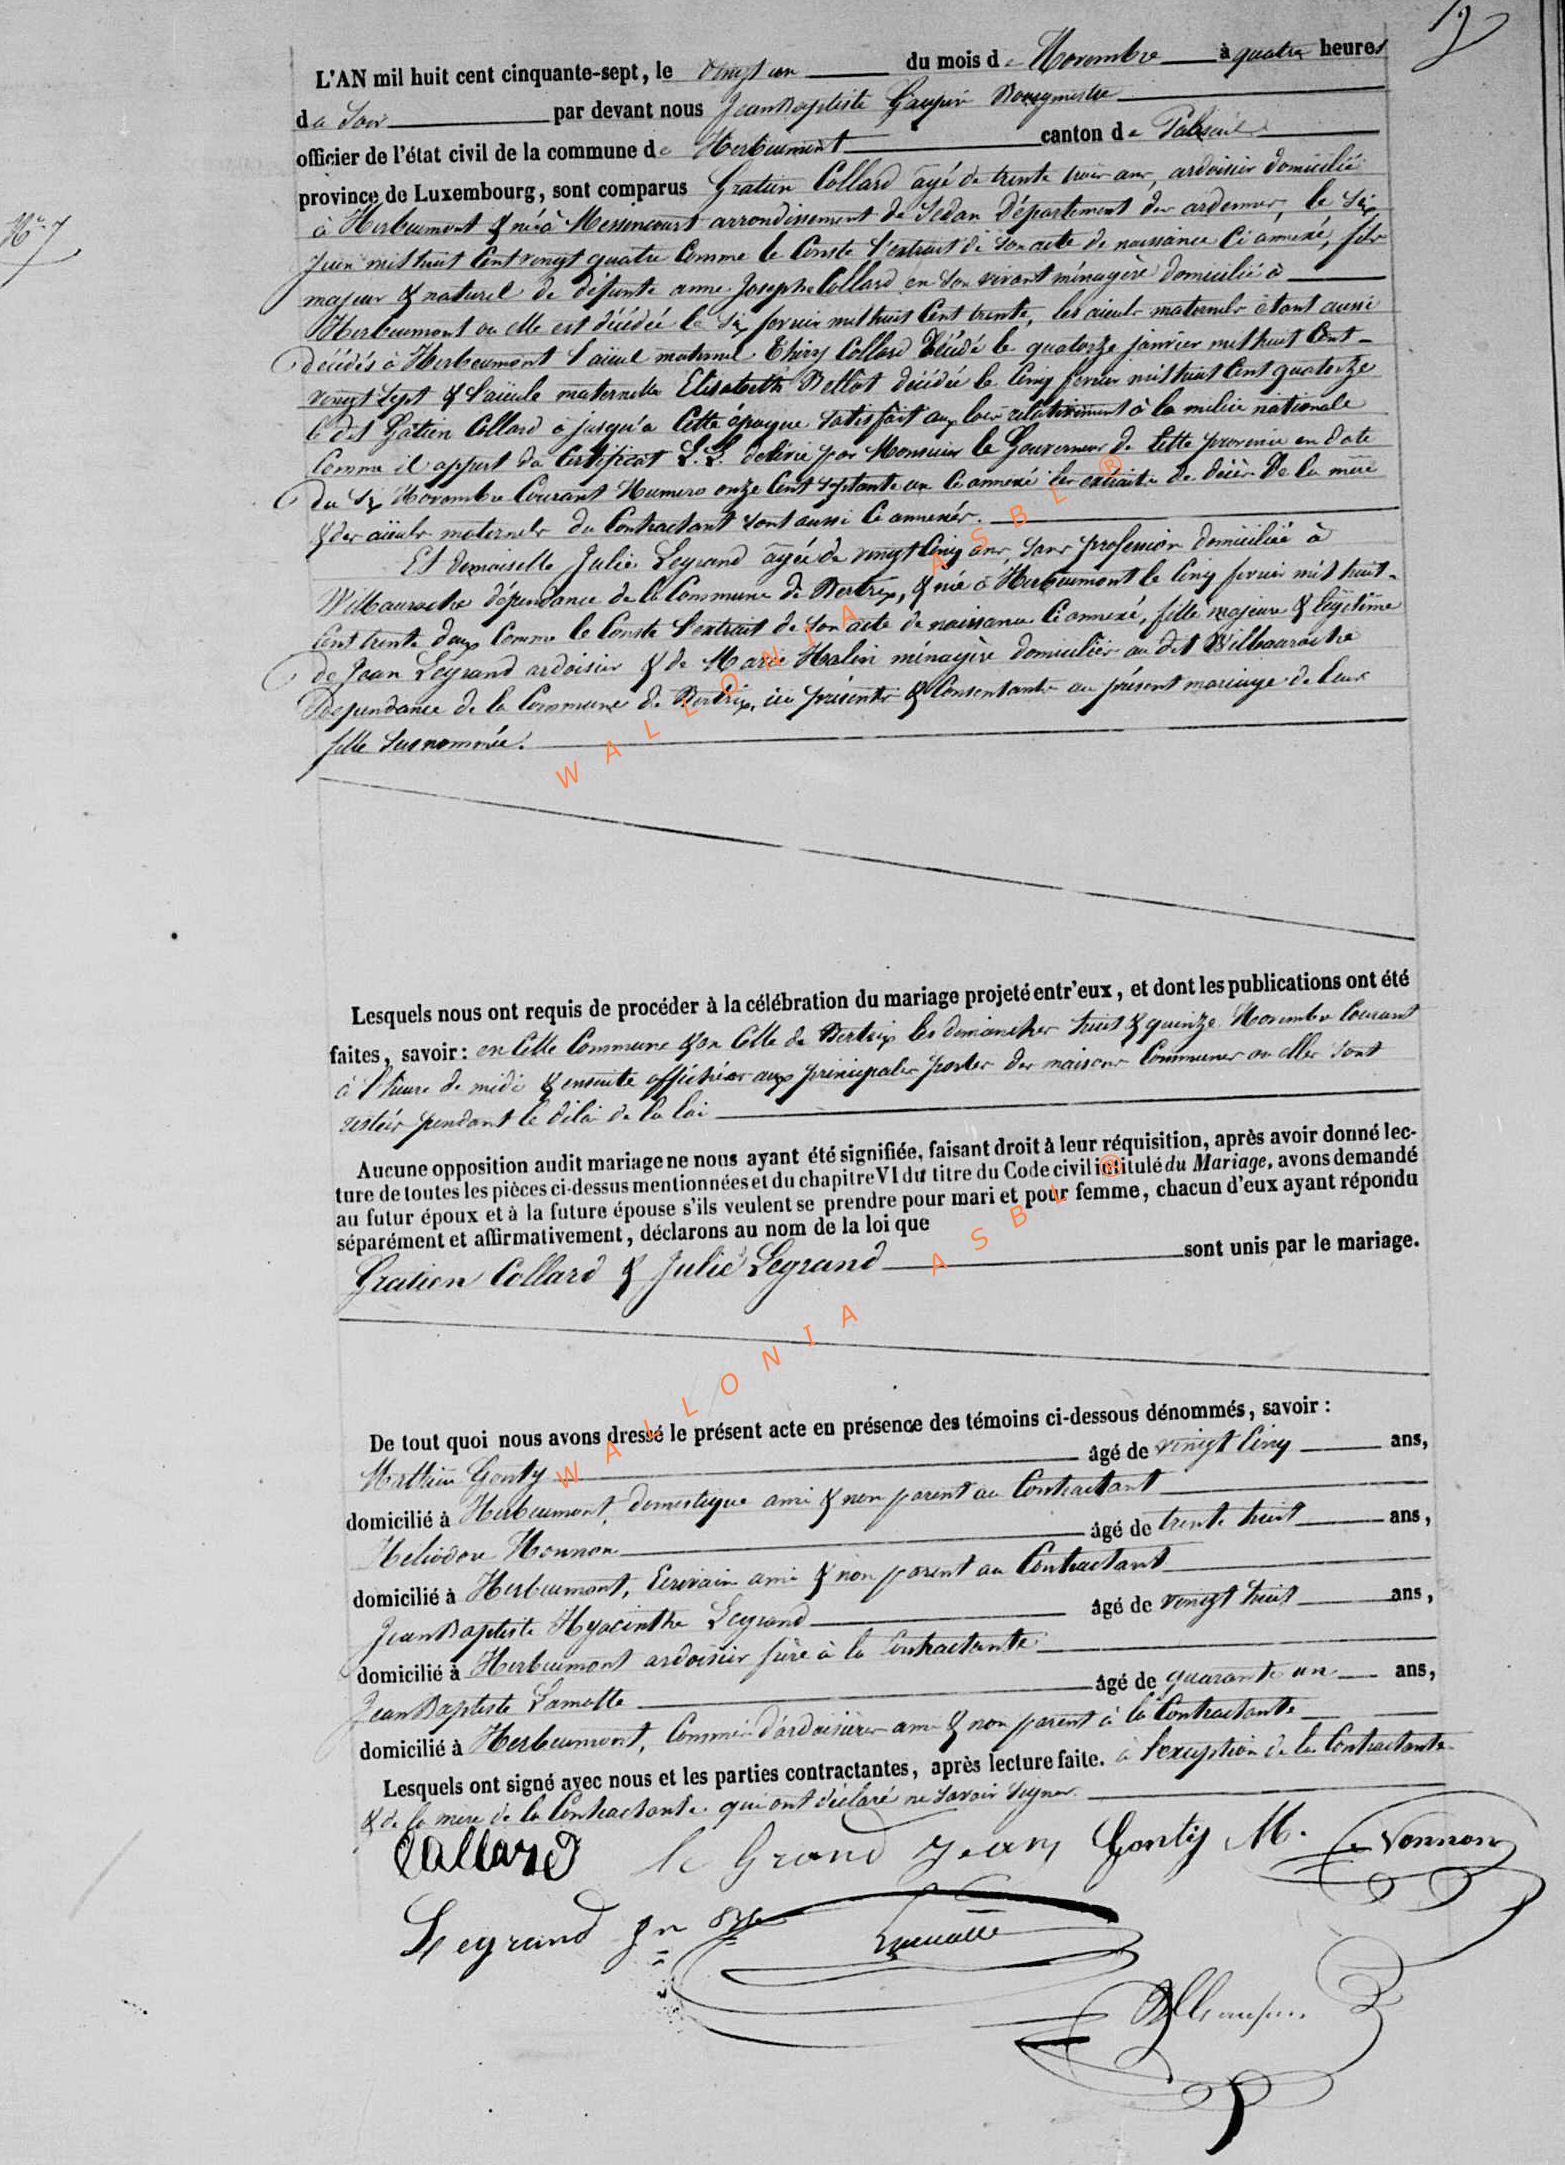 19
N.º 7
L'AN mil huit cent cinquante-sept, le vingt un du mois de Novembre à quatre heures
du Soir par devant nous JeanBaptiste Gaupin Bourgmestre
officier de l'état civil de la commune de Herbeumont canton de Paliseul
province de Luxembourg, sont comparus Gratien Collard âgé de trente trois ans, ardoisier domicilié
à Herbeumont & né à Messincourt arrondissement de Sedan Département des ardennes, le Six
Juin mil huit Cent vingt quatre Comme le Conste l'extrait de son acte de naissance Ci annexé, fils
majeur & naturel de défunte anne Josephe Collard en son vivant ménagère domiciliée à
Herbeumont ou elle est décédée le Six fevrier mil huit Cent trente, les aieuls maternels étant aussi
décédés à Herbeumont l'aïeul maternel Thiry Collard Décédé le quatorze janvier mil huit Cent
vingt sept & l'aieule maternelle Elisabeth Bellot décédée le Cinq fevrier mil huit Cent quatorze
le dit Gatien Collard à jusqu'a Cette époque Satisfait aux lois relativement à la milice nationale
Comme il appert du Certificat L.L. delivré par Monsieur le Gouverneur de Cette province en date
du Six Novembre Courant Numero onze Cent septante un Ci annexé les extraits de décès De la mère
& des aïeuls maternels du Contractant sont aussi Ci annexés.
Et demoiselle Julie Legrand âgée de vingt Cinq ans, sans profession domiciliée à
Wilbauroche dépendance de la Commune de Bertrix, & née à Herbeumont le Cinq fevrier mil huit
Cent trente deux Comme le Conste l'extrait de son acte de naissance Ci annexé, fille majeure & legitime
de Jean Legrand ardoisier & de Marie Halin ménagère domiciliés au dit Wilbauroche
Dependance de la Commune de Bertrix, ici présents & Consentants au présent mariage de leur
fille Susnommée.
Lesquels nous ont requis de procéder à la célébration du mariage projeté entr'eux, et dont les publications ont été
faites, savoir: en Cette Commune & en Celle de Bertrix les dimanches huit & quinze Novembre Courant
à l'heure de midi & ensuite affichées aux principales portes des maisons Communes ou elles sont
restées pendant le délai de la loi
Aucune opposition audit mariage ne nous ayant été signifiée, faisant droit à leur réquisition, après avoir donné lec-
ture de toutes les pièces ci-dessus mentionnées et du chapitre VI du titre du Code civil intitulé du Mariage, avons demandé
au futur époux et à la future épouse s'ils veulent se prendre pour mari et pour femme, chacun d'eux ayant répondu
séparément et affirmativement, déclarons au nom de la loi que
Gratien Collard & Julie Legrand sont unis par le mariage.
De tout quoi nous avons dressé le présent acte en présence des témoins ci-dessous dénommés, savoir:
Mathieu Gonty âgé de vingt Cinq ans,
domicilié à Herbeumont, domestique ami & non parent au Contractant
Heliodore Honnon âgé de trente huit ans,
domicilié à Herbeumont, Ecrivain ami & non parent au Contractant
JeanBaptiste Hyacinthe Legrand âgé de vingt huit ans,
domicilié à Herbeumont ardoisier frère à la Contractante
JeanBaptiste Lamotte âgé de quarante un ans,
domicilié à Herbeumont, Commis d'ardoisières ami & non parent à la Contractante
Lesquels ont signé avec nous et les parties contractantes, après lecture faite. à l'exception de la Contractante
& de la mere de la Contractante qui ont déclaré ne savoir signer.
Collard le Grand Jean Gontiy M. Honnon
Legrand Jn Bte Lamotte
WALLONIA ASBL ®
WALLONIA ASBL ®